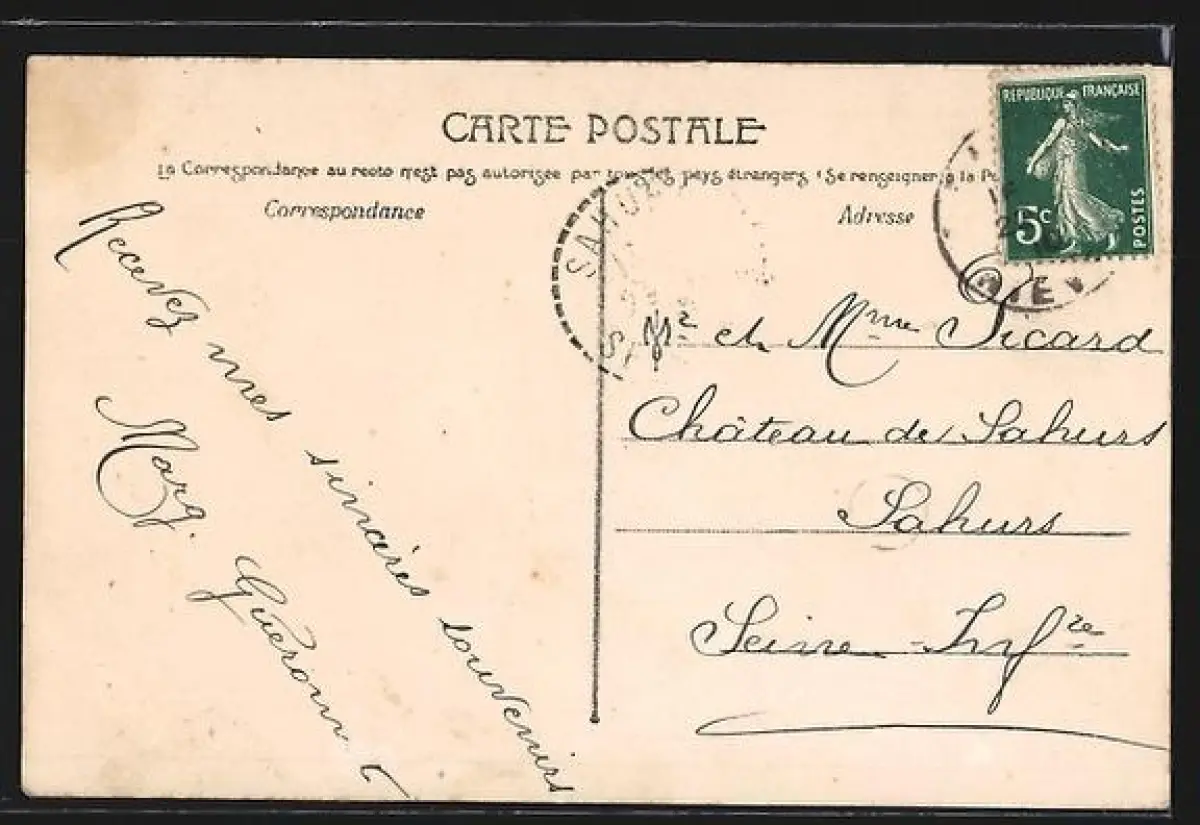 CARTE POSTALE
La Correspondance au recto n'est pas autorisée par tous les pays étrangers (Se renseigner à la
Correspondance
Adresse
REPUBLIQUE FRANÇAISE
5c
POSTES
SAHURS
Recevez mes sincères souvenirs
Marg. Guérout
Mr et Mme Sicard
Château de Sahurs
Sahurs
Seine-Infre